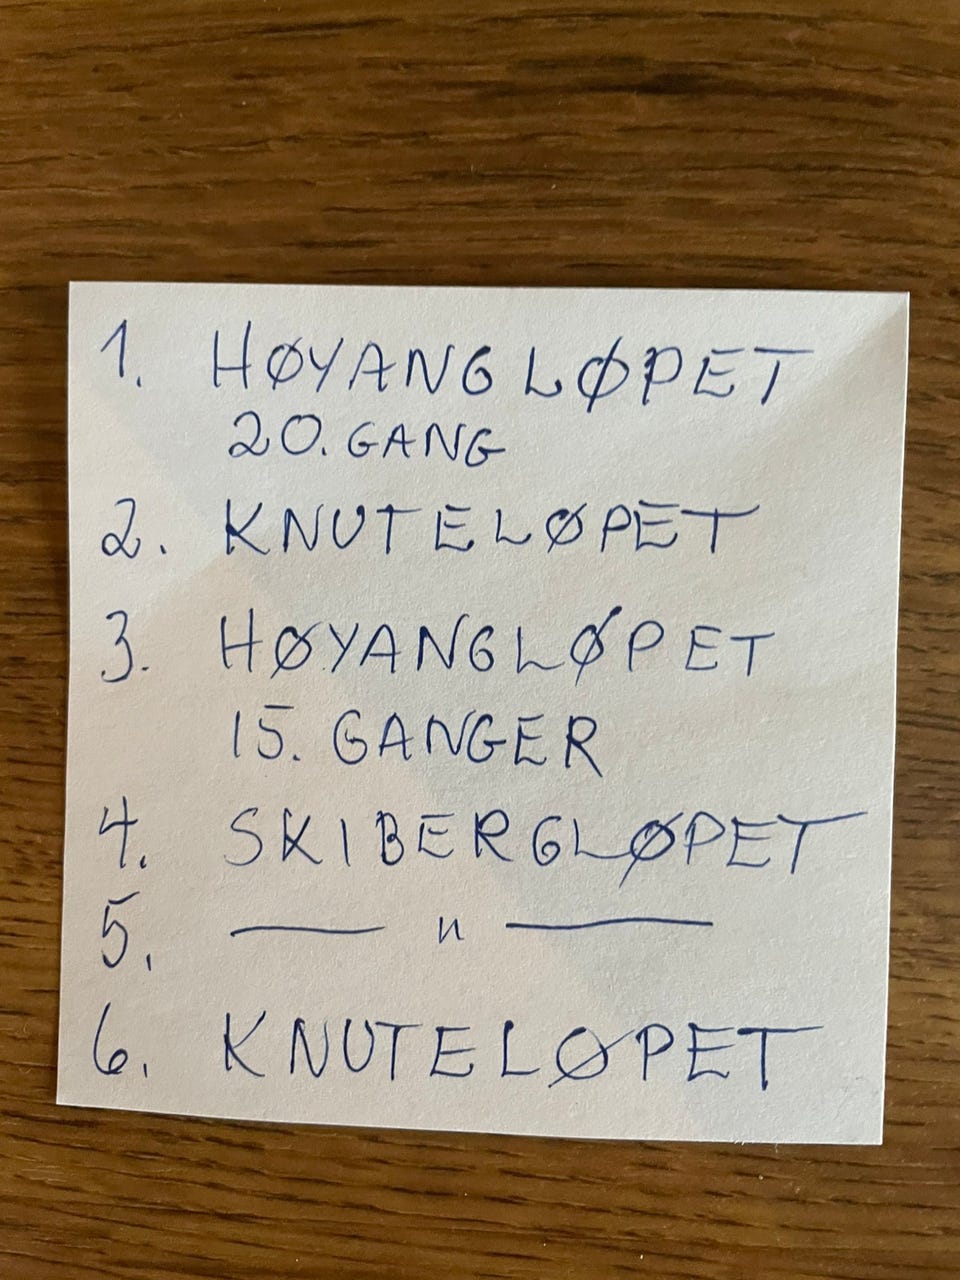 1. HØYANGLØPET
20. GANG
2. KNUTELØPET
3. HØYANGLØPET
15. GANGER
4. SKIBERGLØPET
5. —— " ——
6. KNUTELØPET